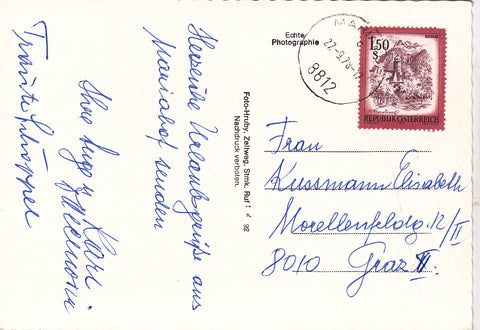 Herzliche Urlaubsgrüße aus
Mariahof senden
Ihre
Karl
Traute
Foto-Hruby, Zeltweg, Stmk. Ruf
92
Nachdruck verboten.
Echte
Photographie
MA
22.-9.78-17
8812
1.50
S
BLUDENZ
REPUBLIK ÖSTERREICH
Frau
Kussmann Elisabeth
Morellenfeldg. 12/II
8010 Graz